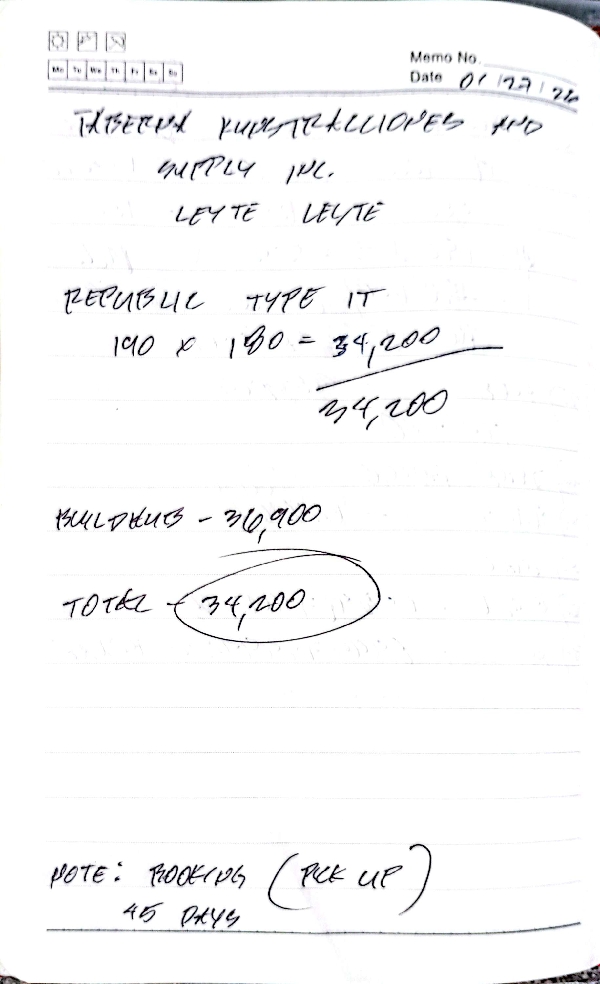 Mo Tu We Th Fr Sa Su
Memo No.
Date 01/27/26
TABERNA KUNSTRACCIONES AND
SUPPLY INC.
LEYTE LEYTE
REPUBLIC TYPE 1T
190 x 180 = 34,200
34,200
BUILDHUB - 36,900
TOTAL - 34,200
NOTE: BOOKING (PICK UP)
45 DAYS